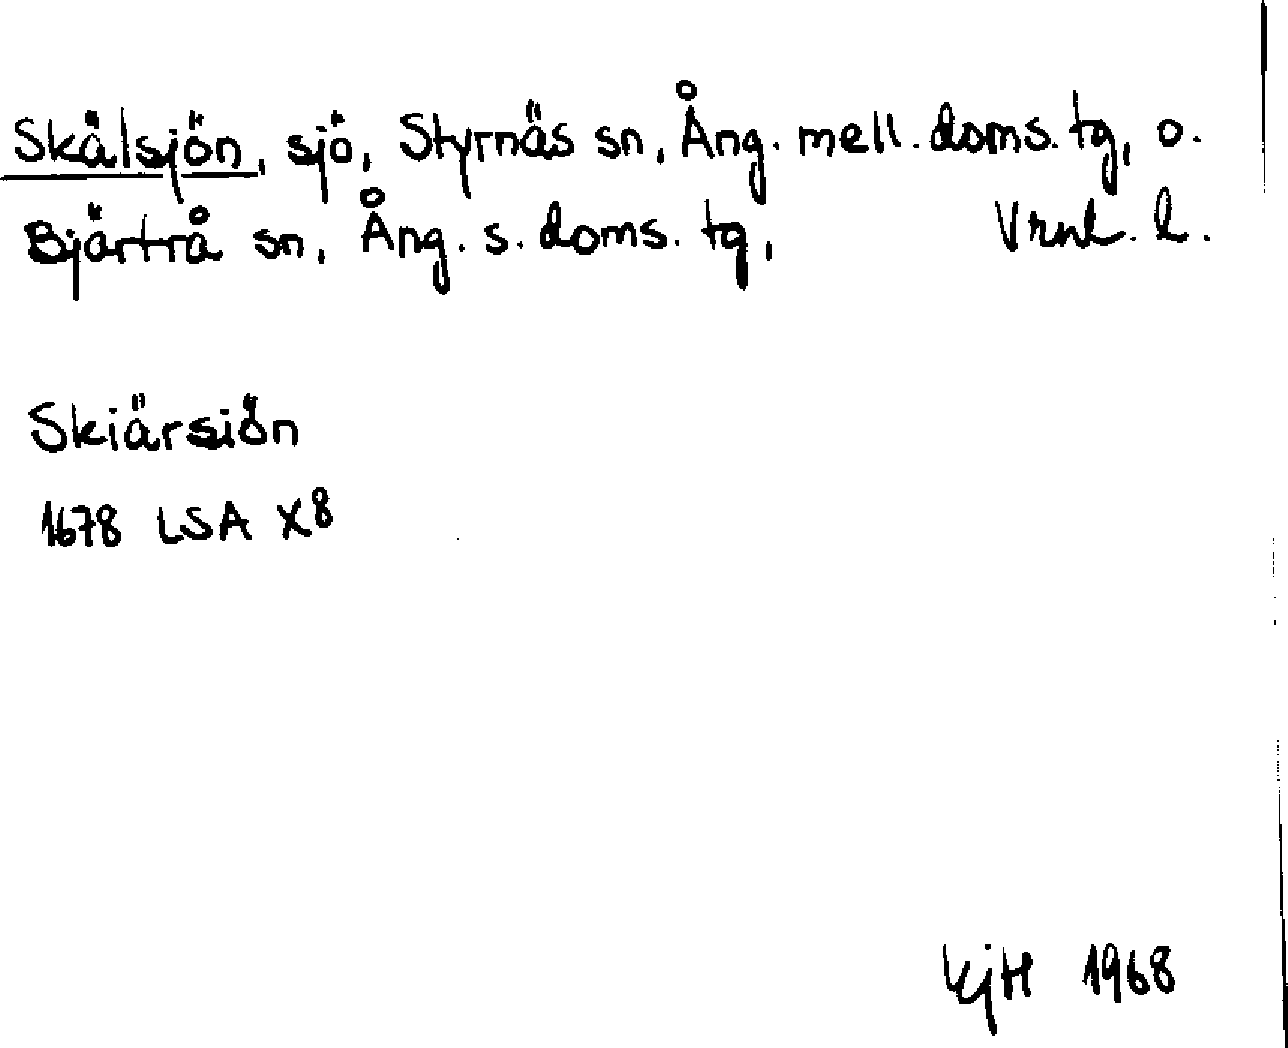 Skälsjön, sjö, Styrnäs sn, Ång. mell. doms. tg, o.
Bjärtrå sn, Ång. s. doms. tg, Vrnl. l.
Skiärsiön
1678 LSA X8
KjH 1968